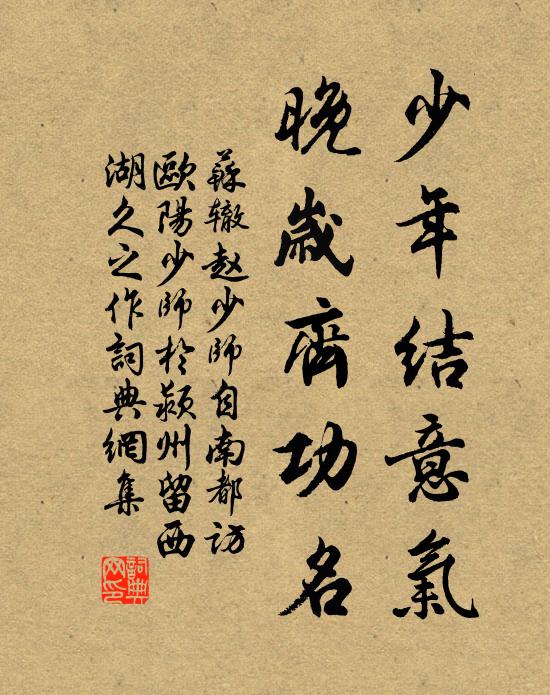 少年結意氣
晚歲齊功名
蘇辙赵少師自南都訪
歐陽少師於颍州留西
湖久之作詞典網集
詞典
网印